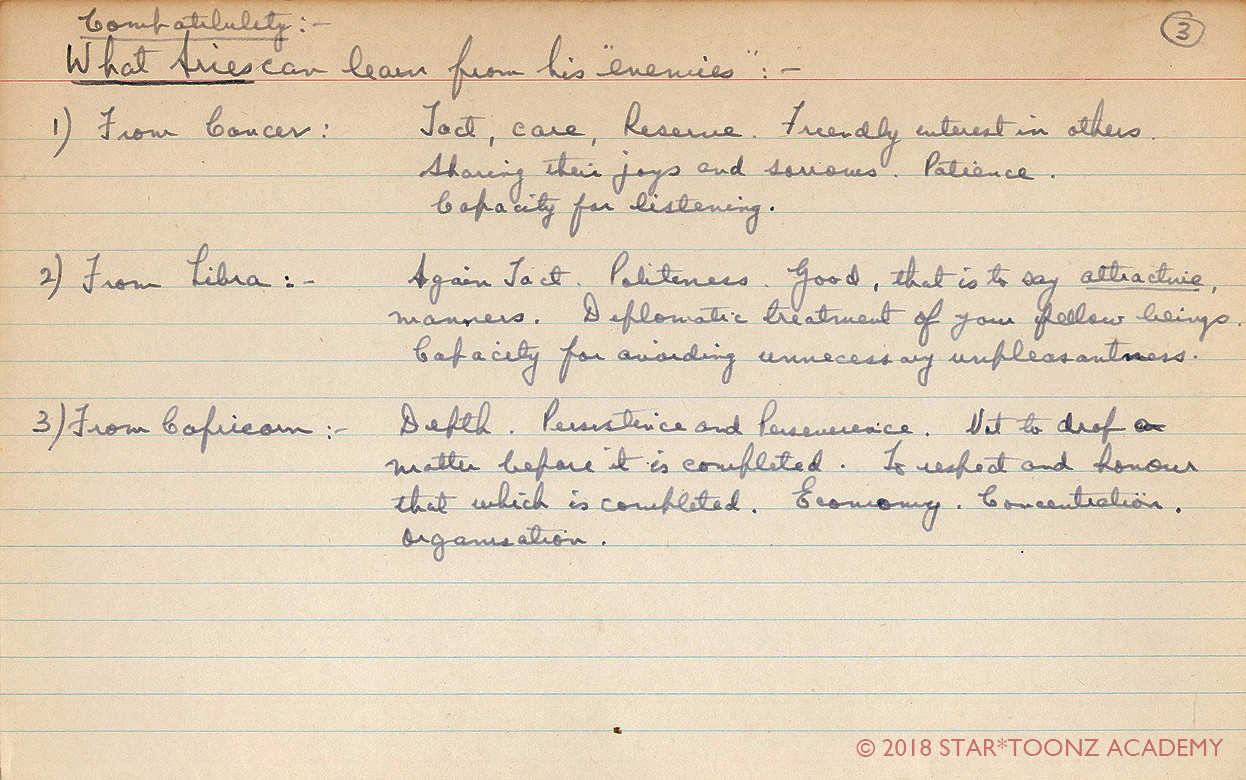 Compatibility:-
3
What Aries can learn from his "enemies":-
1) From Cancer: Tact, care, Reserve. Friendly interest in others.
Sharing their joys and sorrows. Patience.
Capacity for listening.
2) From Libra:- Again Tact. Politeness. Good, that is to say attractive,
manners. Diplomatic treatment of your fellow beings.
Capacity for avoiding unnecessary unpleasantness.
3) From Capricorn:- Depth. Persistence and Perseverence. Not to drop a
matter before it is completed. To respect and honour
that which is completed. Economy. Concentration.
Organisation.
© 2018 STAR*TOONZ ACADEMY